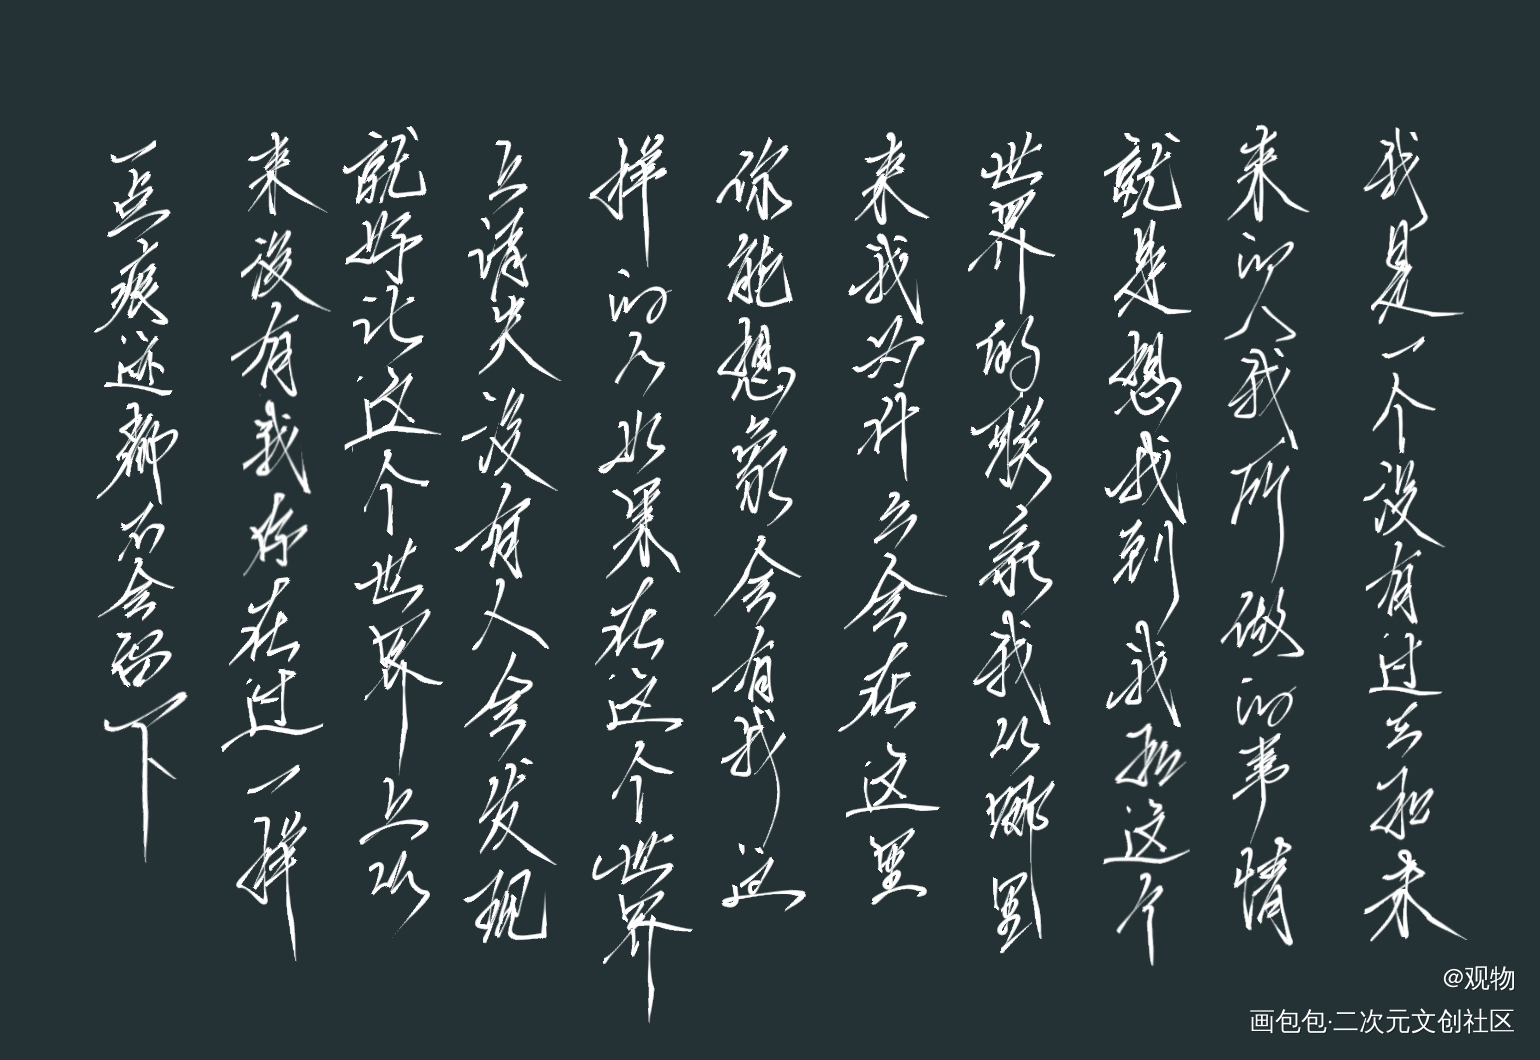 我是一个没有过去和未
来的人我所做的事情
就是想找到我和这个
世界的联系我从哪里
来我为什么会在这里
你能想象会有我这
样的人如果在这个世界
上消失没有人会发现
就好让这个世界上从
来没有我存在过一样
一点痕迹都不会留下
@观物
画包包·二次元文创社区